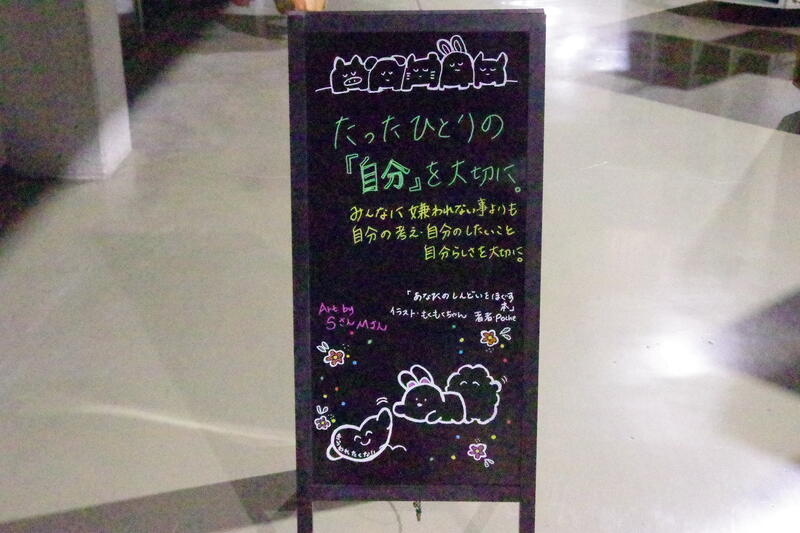 たったひとりの
『自分』を大切に。
みんなに嫌われない事よりも
自分の考え・自分のしたいこと
自分らしさを大切に。
「あなたのしんどいをほぐす
本」
イラスト・もくもくちゃん 著者・Poche
Art by
SさんMさん
キラわれたくない